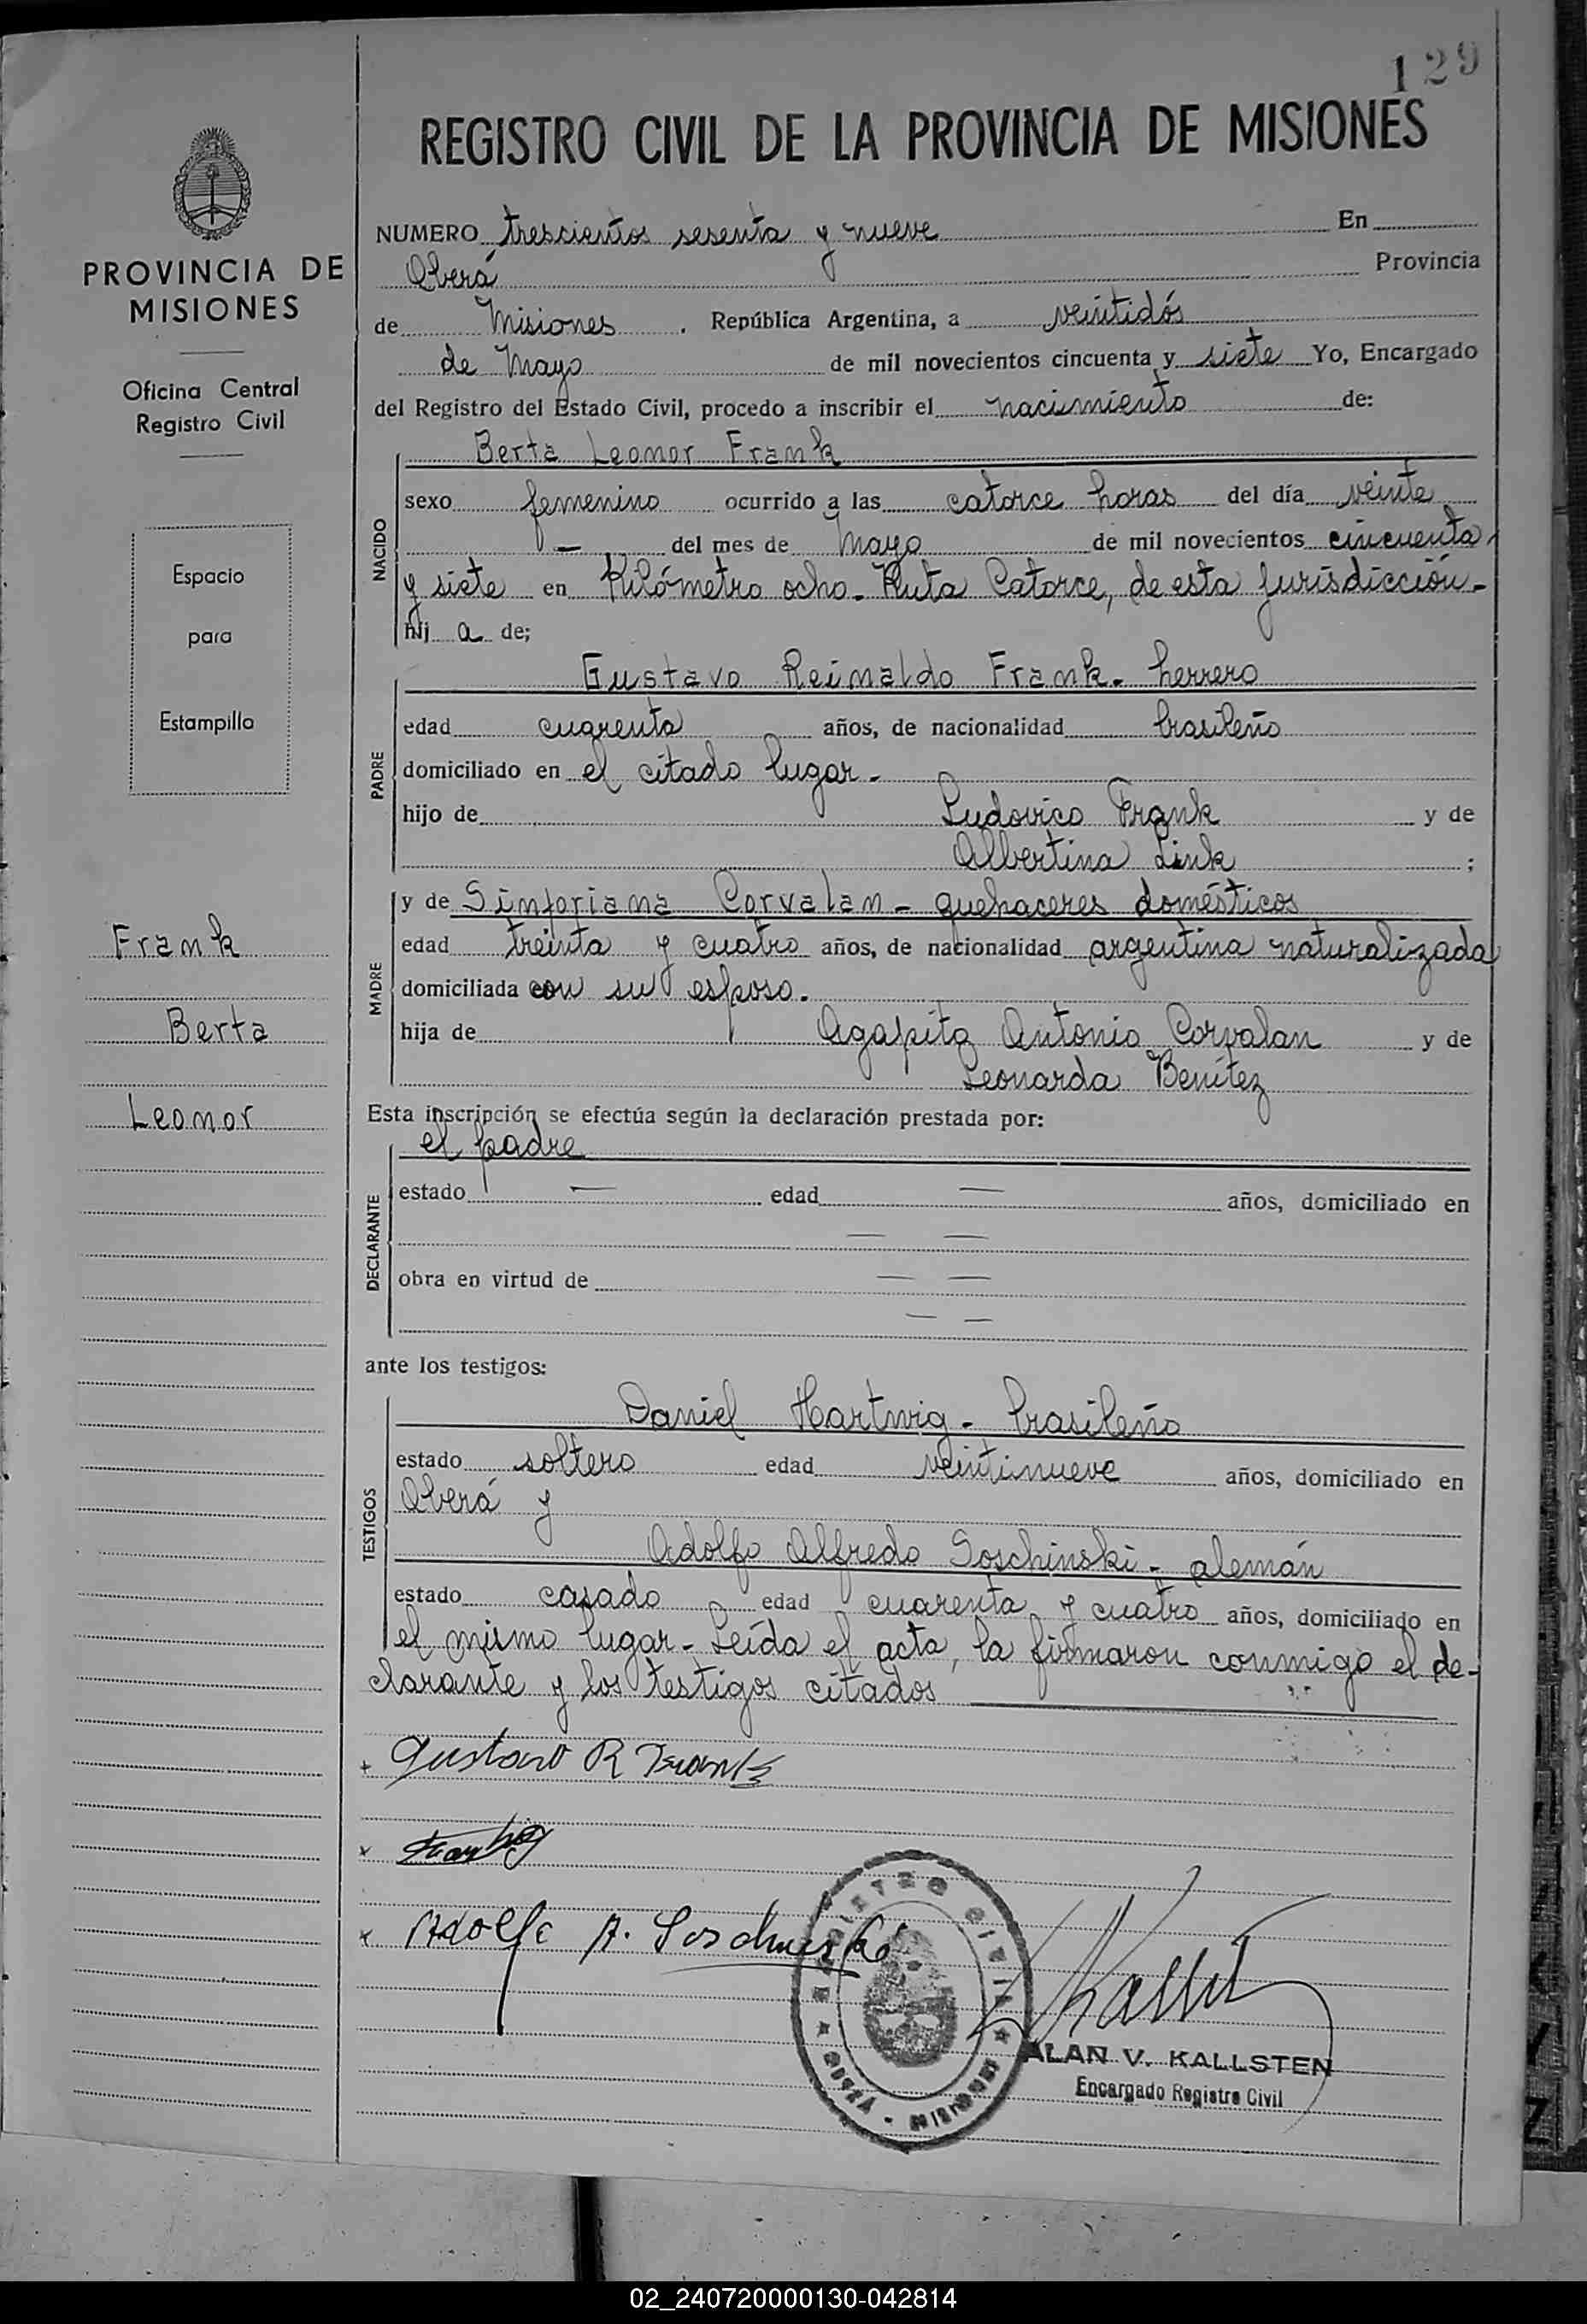 129
REGISTRO CIVIL DE LA PROVINCIA DE MISIONES
PROVINCIA DE
MISIONES
Oficina Central
Registro Civil
Espacio
para
Estampilla
Frank
Berta
Leonor
NUMERO trescientos sesenta y nueve En
Oberá Provincia
de Misiones. República Argentina, a veintidós
de Mayo de mil novecientos cincuenta y siete Yo, Encargado
del Registro del Estado Civil, procedo a inscribir el nacimiento de:
NACIDO
Berta Leonor Frank
sexo femenino ocurrido a las catorce horas del día veinte
— del mes de Mayo de mil novecientos cincuenta
y siete en Kilómetro ocho - Ruta Catorce, de esta jurisdicción -
hij a de;
PADRE
Gustavo Reinaldo Frank - herrero
edad cuarenta años, de nacionalidad brasileño
domiciliado en el citado lugar -
hijo de Ludovico Frank y de
Albertina Link ;
MADRE
y de Sinforiana Corvalan - quehaceres domésticos
edad treinta y cuatro años, de nacionalidad argentina naturalizada
domiciliada con su esposo.
hija de Agapito Antonio Corvalan y de
Leonarda Benítez
Esta inscripción se efectúa según la declaración prestada por:
DECLARANTE
el padre
estado — edad — años, domiciliado en
— —
obra en virtud de — —
— —
ante los testigos:
TESTIGOS
Daniel Hartwig - brasileño
estado soltero edad veintinueve años, domiciliado en
Oberá y
Adolfo Alfredo Soschinski - alemán
estado casado edad cuarenta y cuatro años, domiciliado en
el mismo lugar - Leída el acta, la firmaron conmigo el de-
clarante y los testigos citados
Gustavo R Frank
Adolfo A. Soschinski
REGISTRO CIVIL
OBERÁ - MISIONES
ALAN V. KALLSTEN
Encargado Registro Civil
02_240720000130-042814